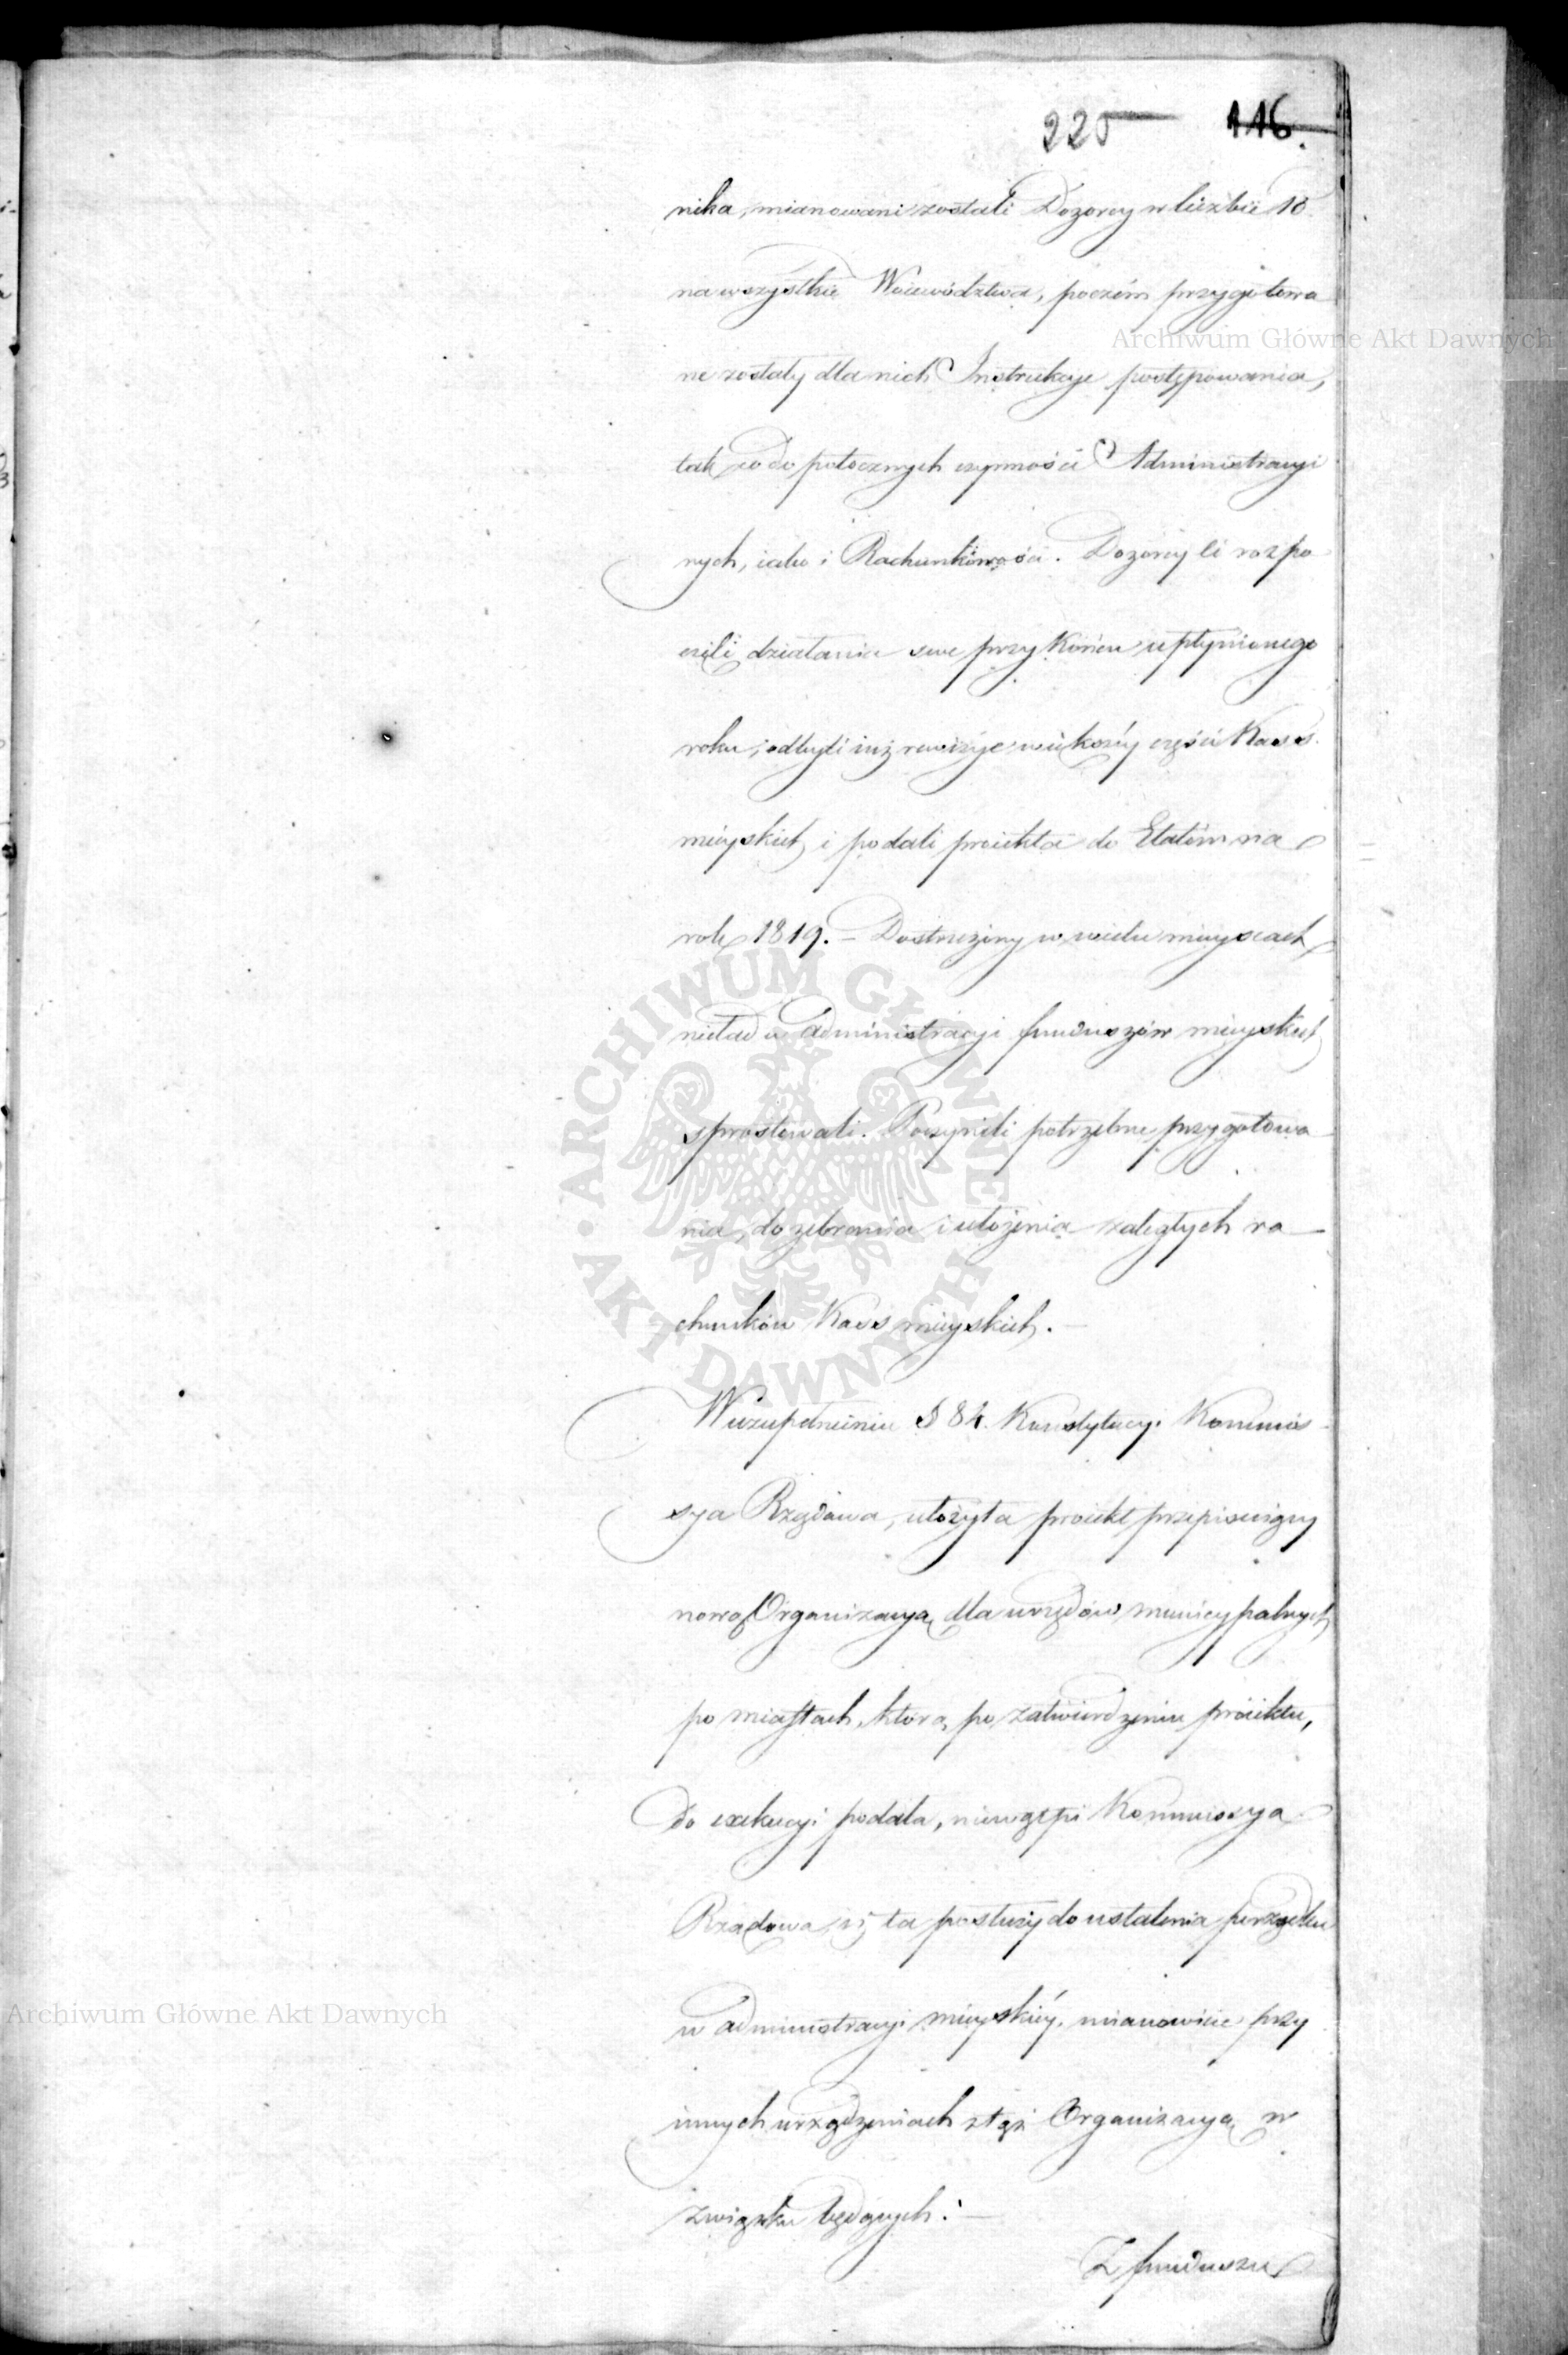 225 116.
nika, mianowani zostali Dozorcy w liczbie
na wszystkie Woiewództwa, poczém przygotowa
ne zostały dla nich Instrukcye postępowania,
tak co do potocznych czynności Administracyi
nych, iako i Rachunkowości. Dozorcy ci rozpo
częli działania swe przy końcu upłynionego
roku, odbyli iuż rewizye większéy części Kass
mieyskich i podali proiekta do Etatów na
rok 1819. – Dostrzeżony w wielu mieyscach
nieład w administracyi funduszów mieyskich
sprostowali. Poczynili potrzebne przygotowa
nia, do zebrania i ułożenia zaległych ra–
chunków Kass mieyskich. –
W uzupełnieniu § 84. Konstytucyi Kommis
sya Rządowa, ułożyła proiekt przepisuiący
nową Organizacyą dla urzędów municypalnych
po miastach, którą po zatwierdzeniu proiektu,
do exekucyi podała, niewątpi Kommissya
Rządowa, iż ta posłuży do ustalenia porządku
w administracyi mieyskiéy, mianowicie przy
innych urządzeniach z tąż Organizacyą w
związku będących. –
Z funduszu
Archiwum Główne Akt Dawnych
Archiwum Główne Akt Dawnych
ARCHIWUM GŁÓWNE AKT DAWNYCH